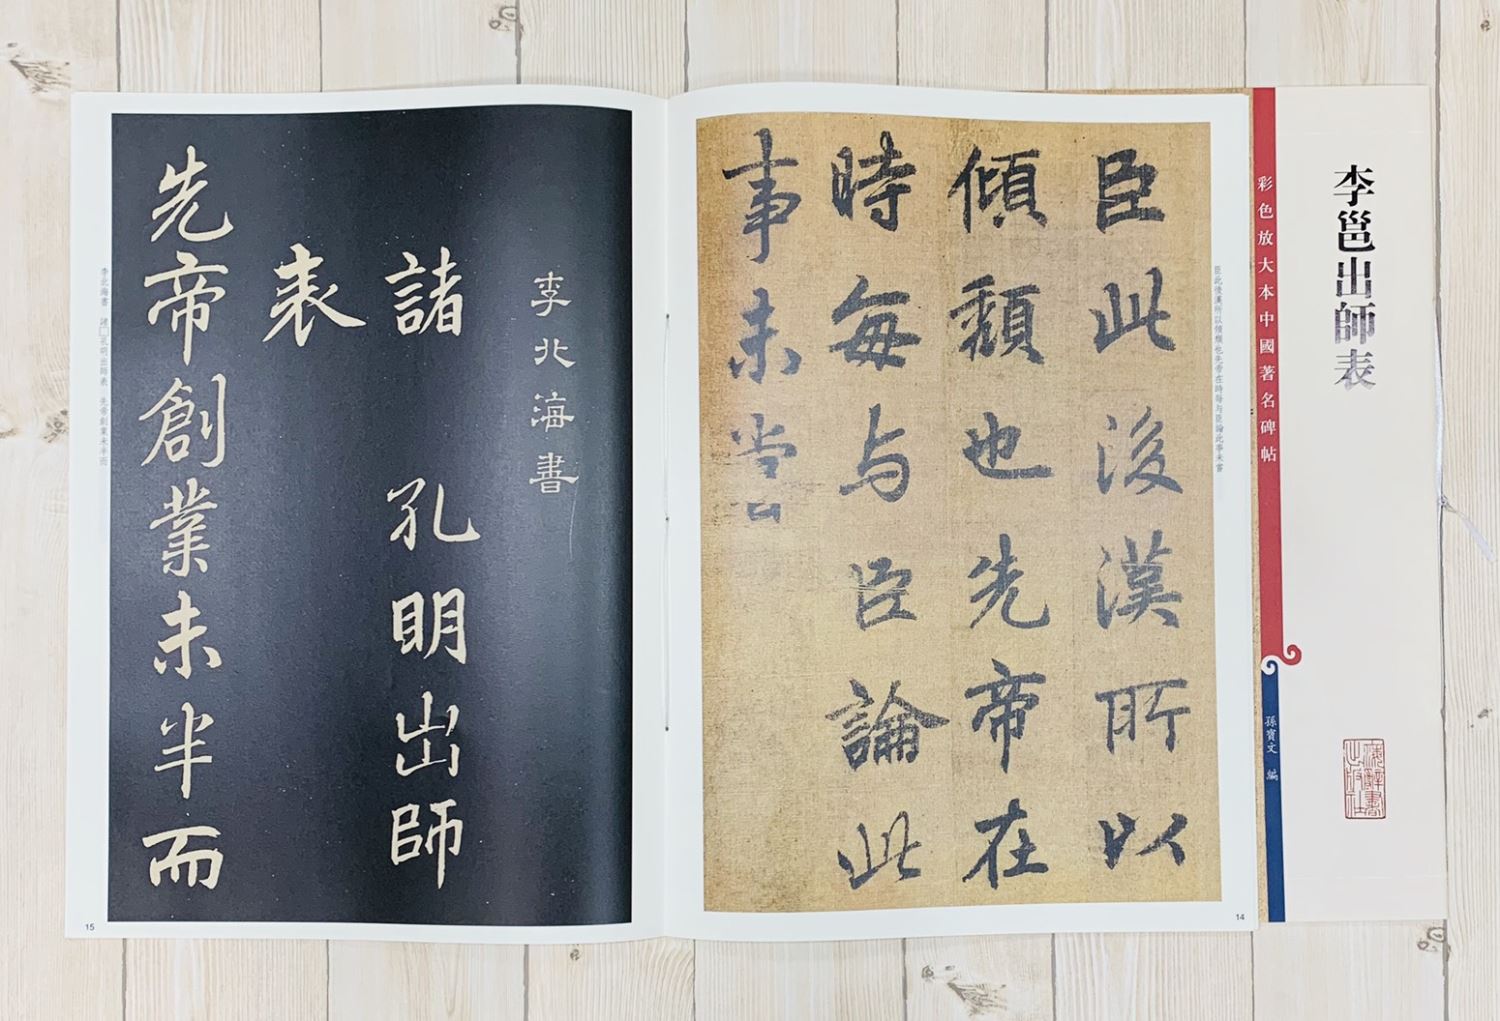 李邕出師表
彩色放大本中國著名碑帖
孫寶文 編
臣此後漢所以傾頹也先帝在時每与臣論此事未嘗
臣此後漢所以
傾頹也先帝在
時每与臣論此
事未嘗
14
李北海書
諸 孔明出師
表
先帝創業未半而
李北海書 諸□孔明出師表 先帝創業未半而
15